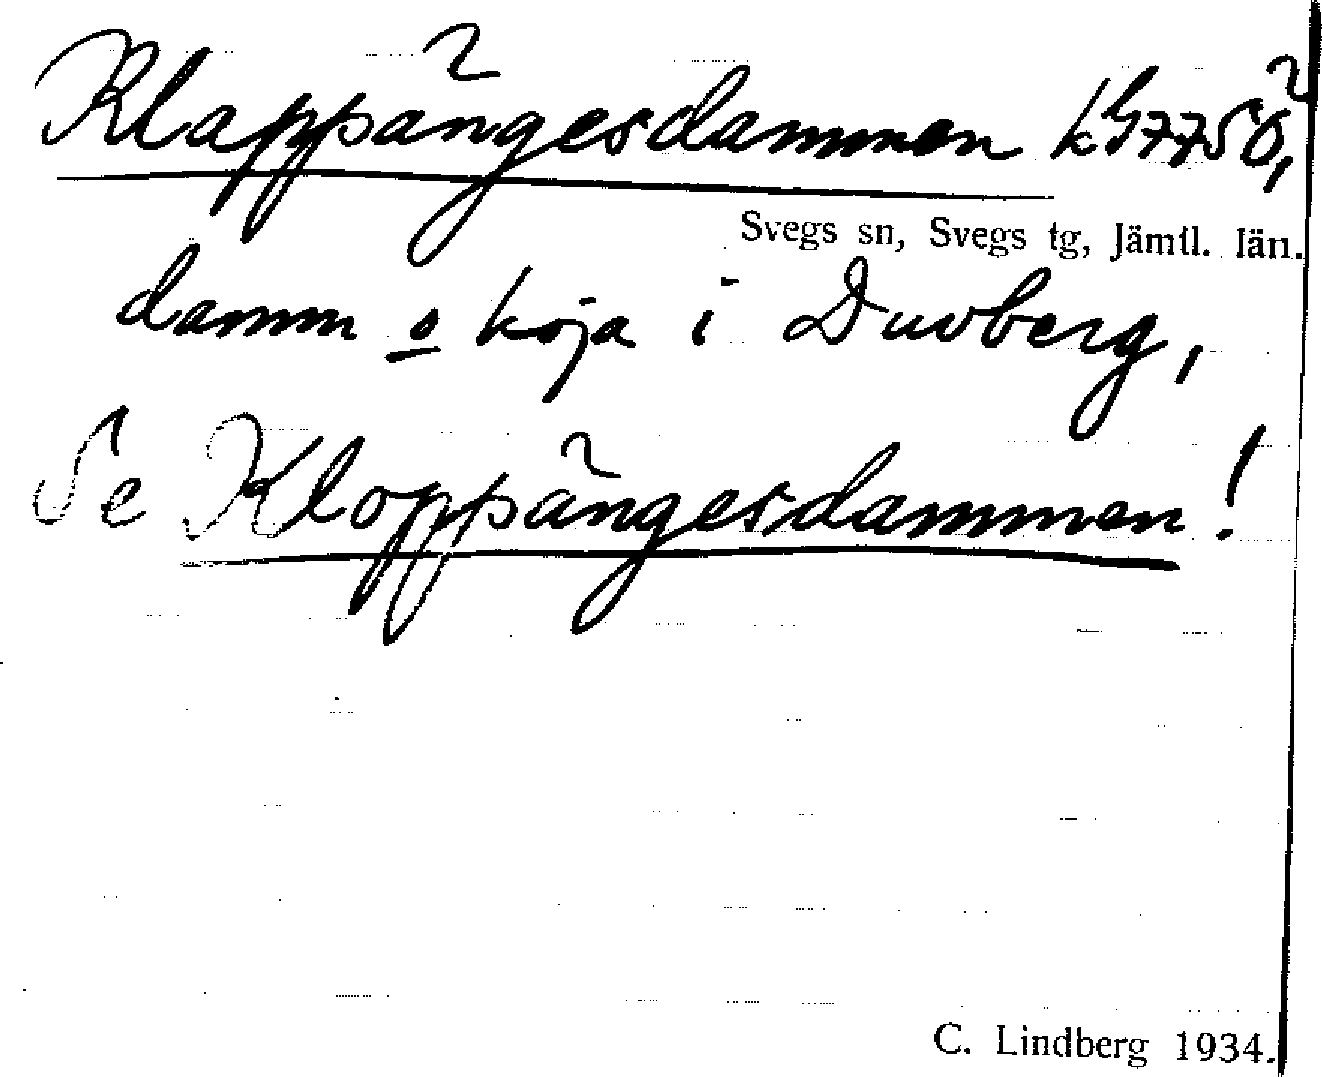 Klappängesdammen kG7750,
Svegs sn, Svegs tg, Jämtl. län.
damm o koja i Duvberg,
Se Kloppängesdammen!
C. Lindberg 1934.